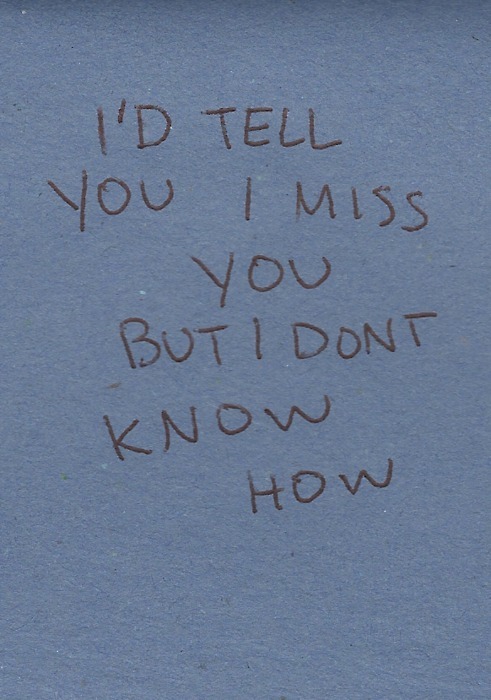 I'D TELL
YOU I MISS
YOU
BUT I DONT
KNOW
HOW